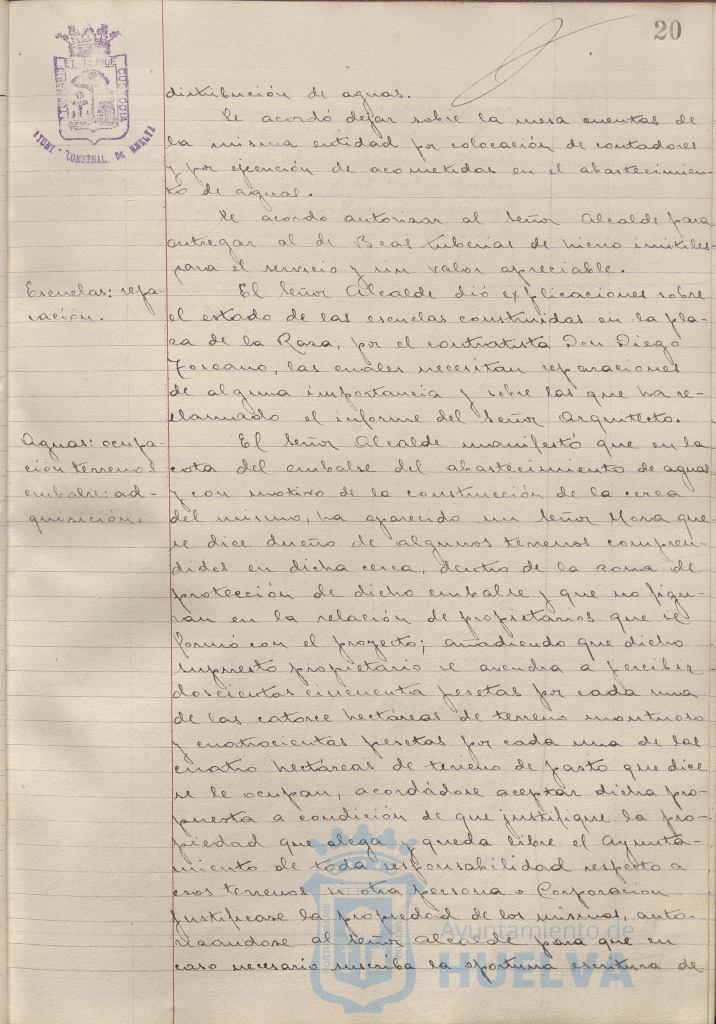 20
distribución de aguas.
Se acordó dejar sobre la mesa cuentas de
la misma entidad por colocación de contadores
y por ejecución de acometidas en el abastecimien-
to de aguas.
Se acordo autorizar al Señor Alcalde para
entregar al de Beas tuberias de hierro inutiles
para el servicio y sin valor apreciable.
Escuelas: repa-
ración.
El Señor Alcalde dió explicaciones sobre
el estado de las escuelas construidas en la pla-
za de la Raza, por el contratista Don Diego
Toscano, las cuales necesitan reparaciones
de alguna importancia y sobre las que ha re-
clamado el informe del Señor Arquitecto.
Aguas: ocupa-
ción terrenos
embalse: ad-
quisición.
El Señor Alcalde manifestó que en la
cota del embalse del abastecimiento de aguas
y con motivo de la construcción de la cerca
del mismo, ha aparecido un Señor Mora que
se dice dueño de algunos terrenos compren-
didos en dicha cerca, dentro de la zona de
protección de dicho embalse y que no figu-
ran en la relación de propietarios que se
formó con el proyecto; añadiendo que dicho
supuesto propietario se avendra a percibir
doscientas cincuenta pesetas por cada una
de las catorce hectáreas de terreno montuoso
y cuatrocientas pesetas por cada una de las
cuatro hectáreas de terreno de pasto que dice
se le ocupan, acordándose aceptar dicha pro-
puesta a condición de que justifique la pro-
piedad que alega y queda libre el Ayunta-
miento de toda responsabilidad respecto a
esos terrenos si otra persona o Corporación
justificase la propiedad de los mismos, auto-
rizandose al Señor Alcalde para que en
caso necesario suscriba la oportuna escritura de
Ayuntamiento de
HUELVA